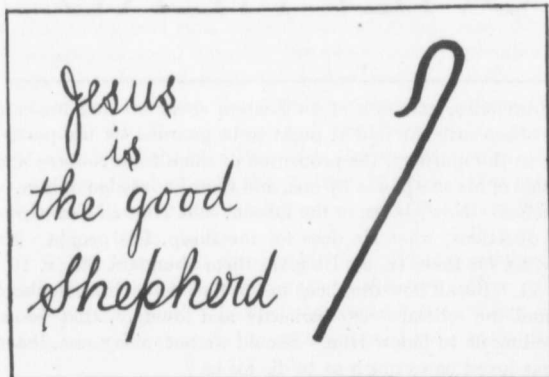 Jesus
is
the good
Shepherd